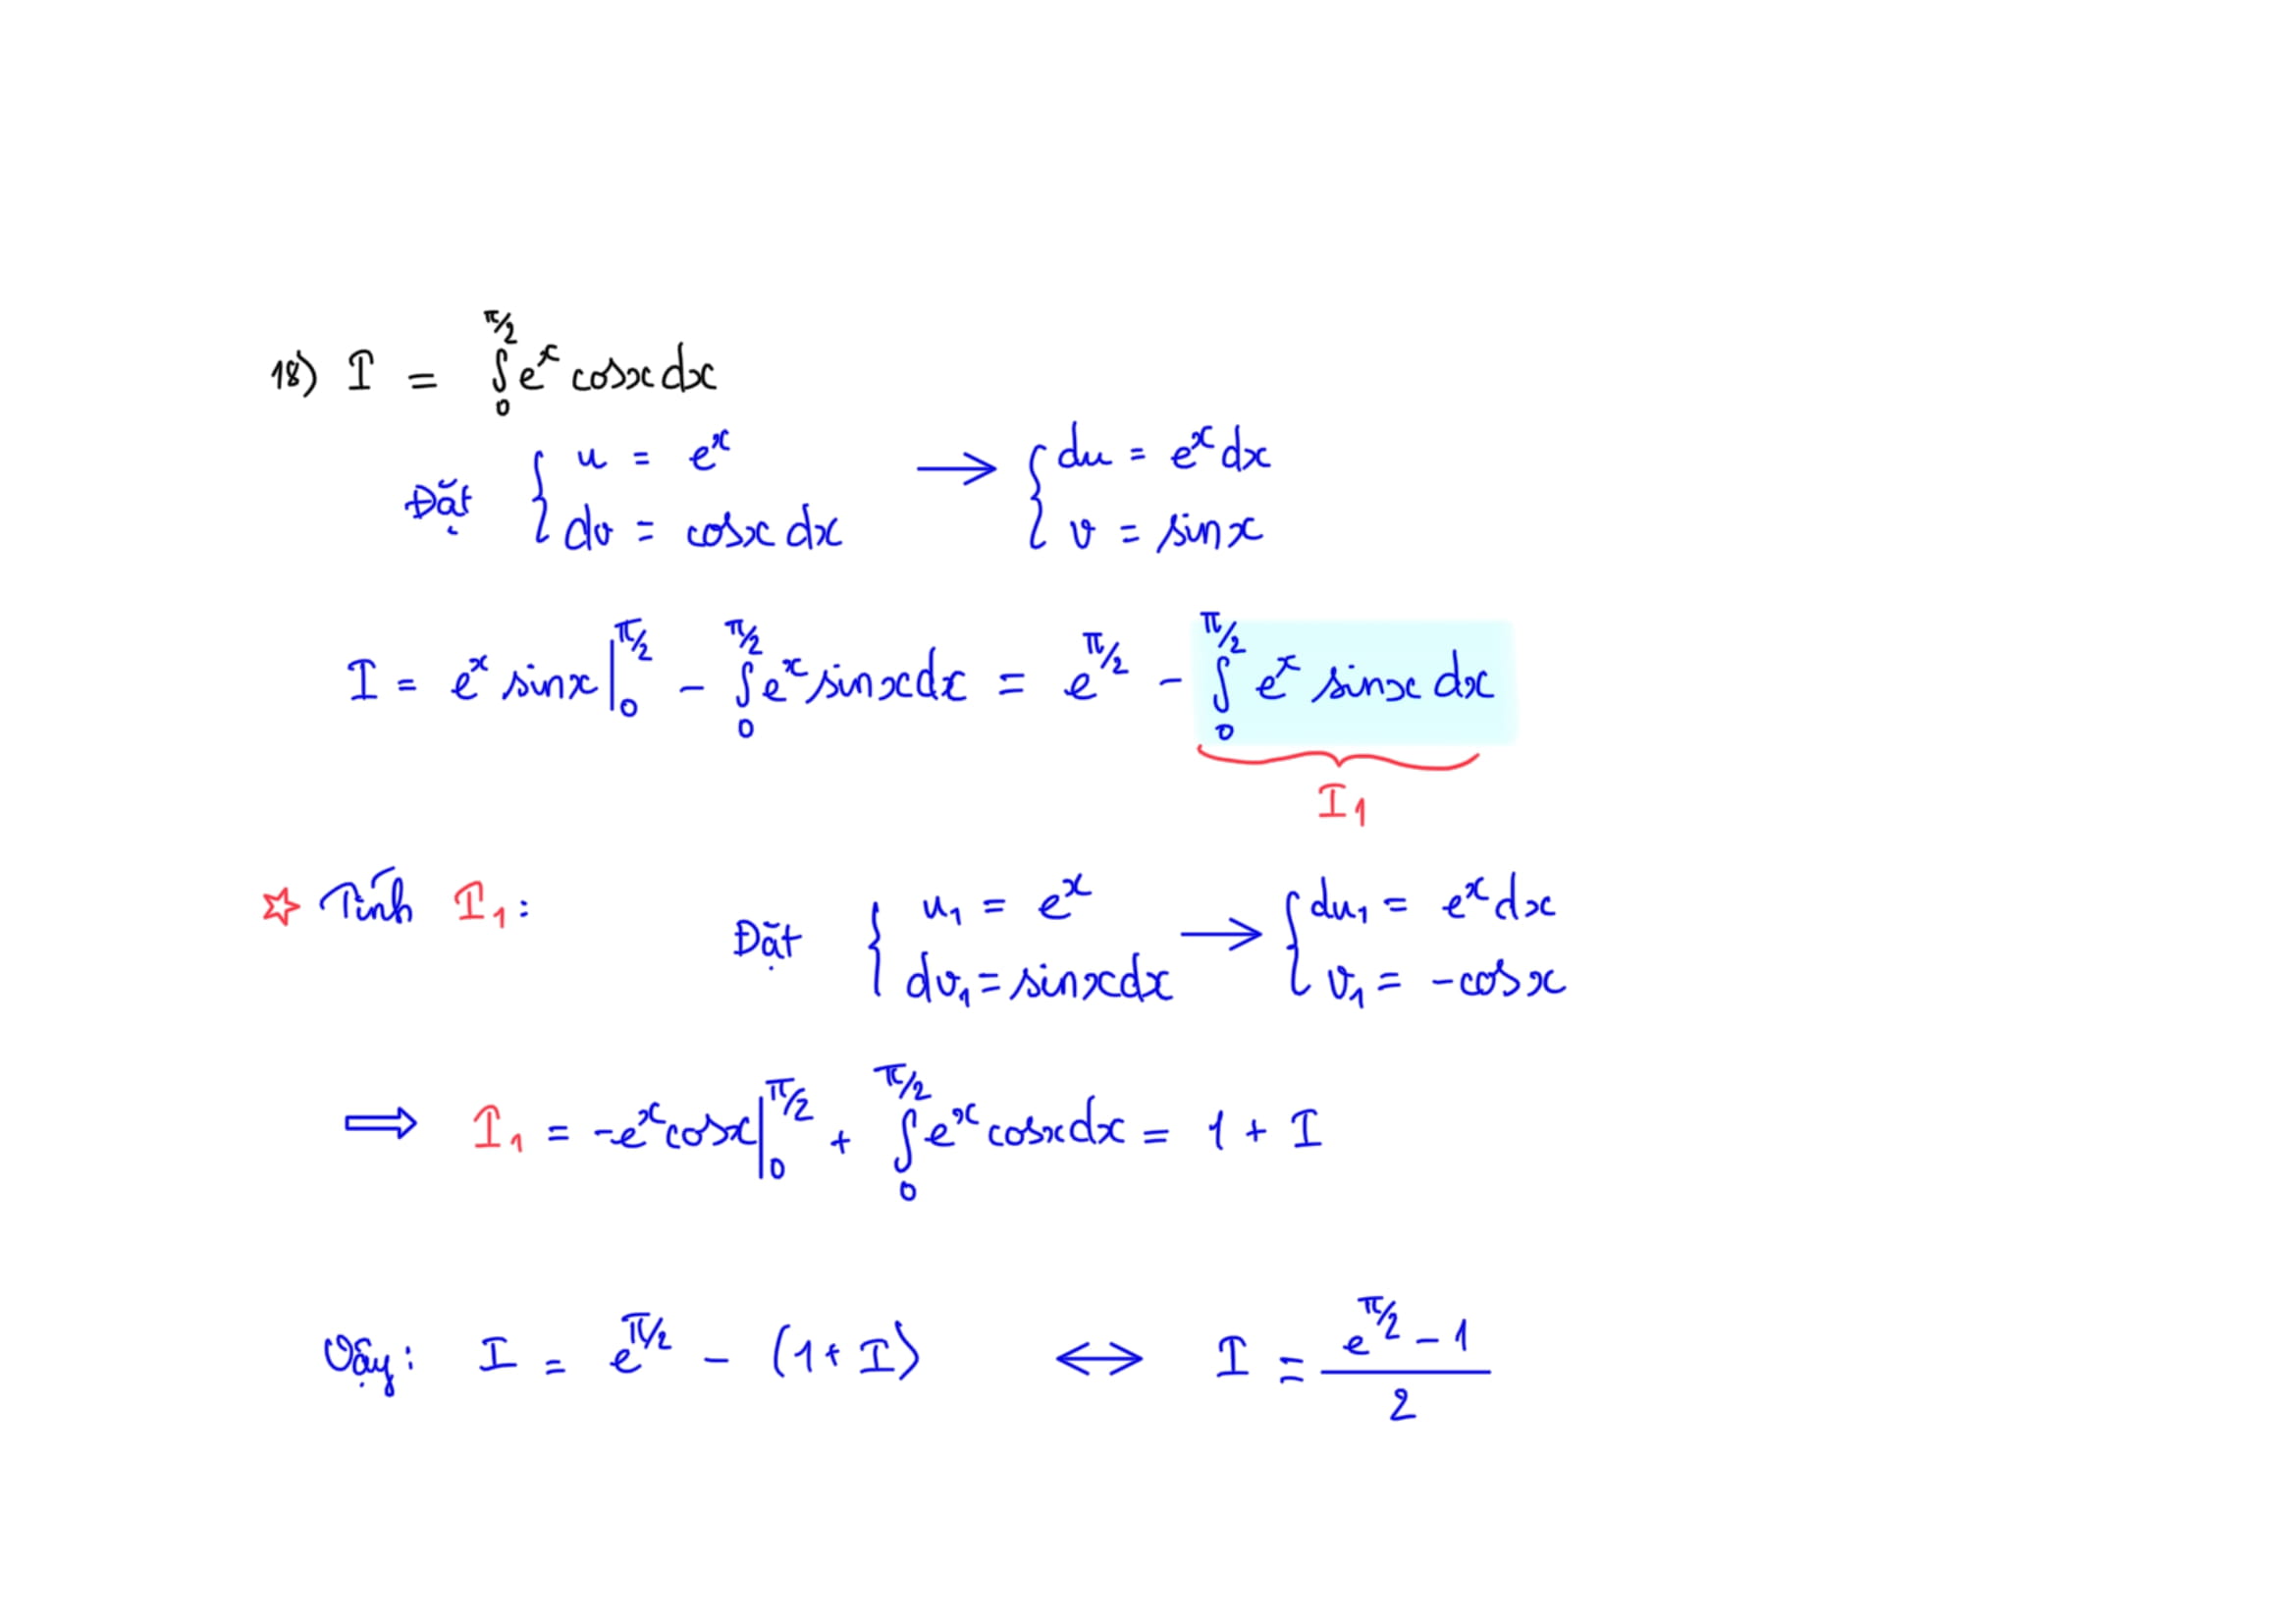 18) I = ∫₀^{π/2} eˣ cosx dx
Đặt { u = eˣ ; dv = cosx dx → { du = eˣ dx ; v = sinx
I = eˣ sinx |₀^{π/2} - ∫₀^{π/2} eˣ sinx dx = e^{π/2} - ∫₀^{π/2} eˣ sinx dx
I₁
☆ Tính I₁: Đặt { u₁ = eˣ ; dv₁ = sinx dx → { du₁ = eˣ dx ; v₁ = -cosx
⟹ I₁ = -eˣ cosx |₀^{π/2} + ∫₀^{π/2} eˣ cosx dx = 1 + I
Vậy: I = e^{π/2} - (1 + I) ⟷ I = (e^{π/2} - 1)/2